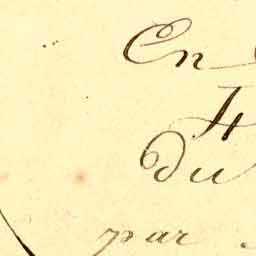 En
4
du
par